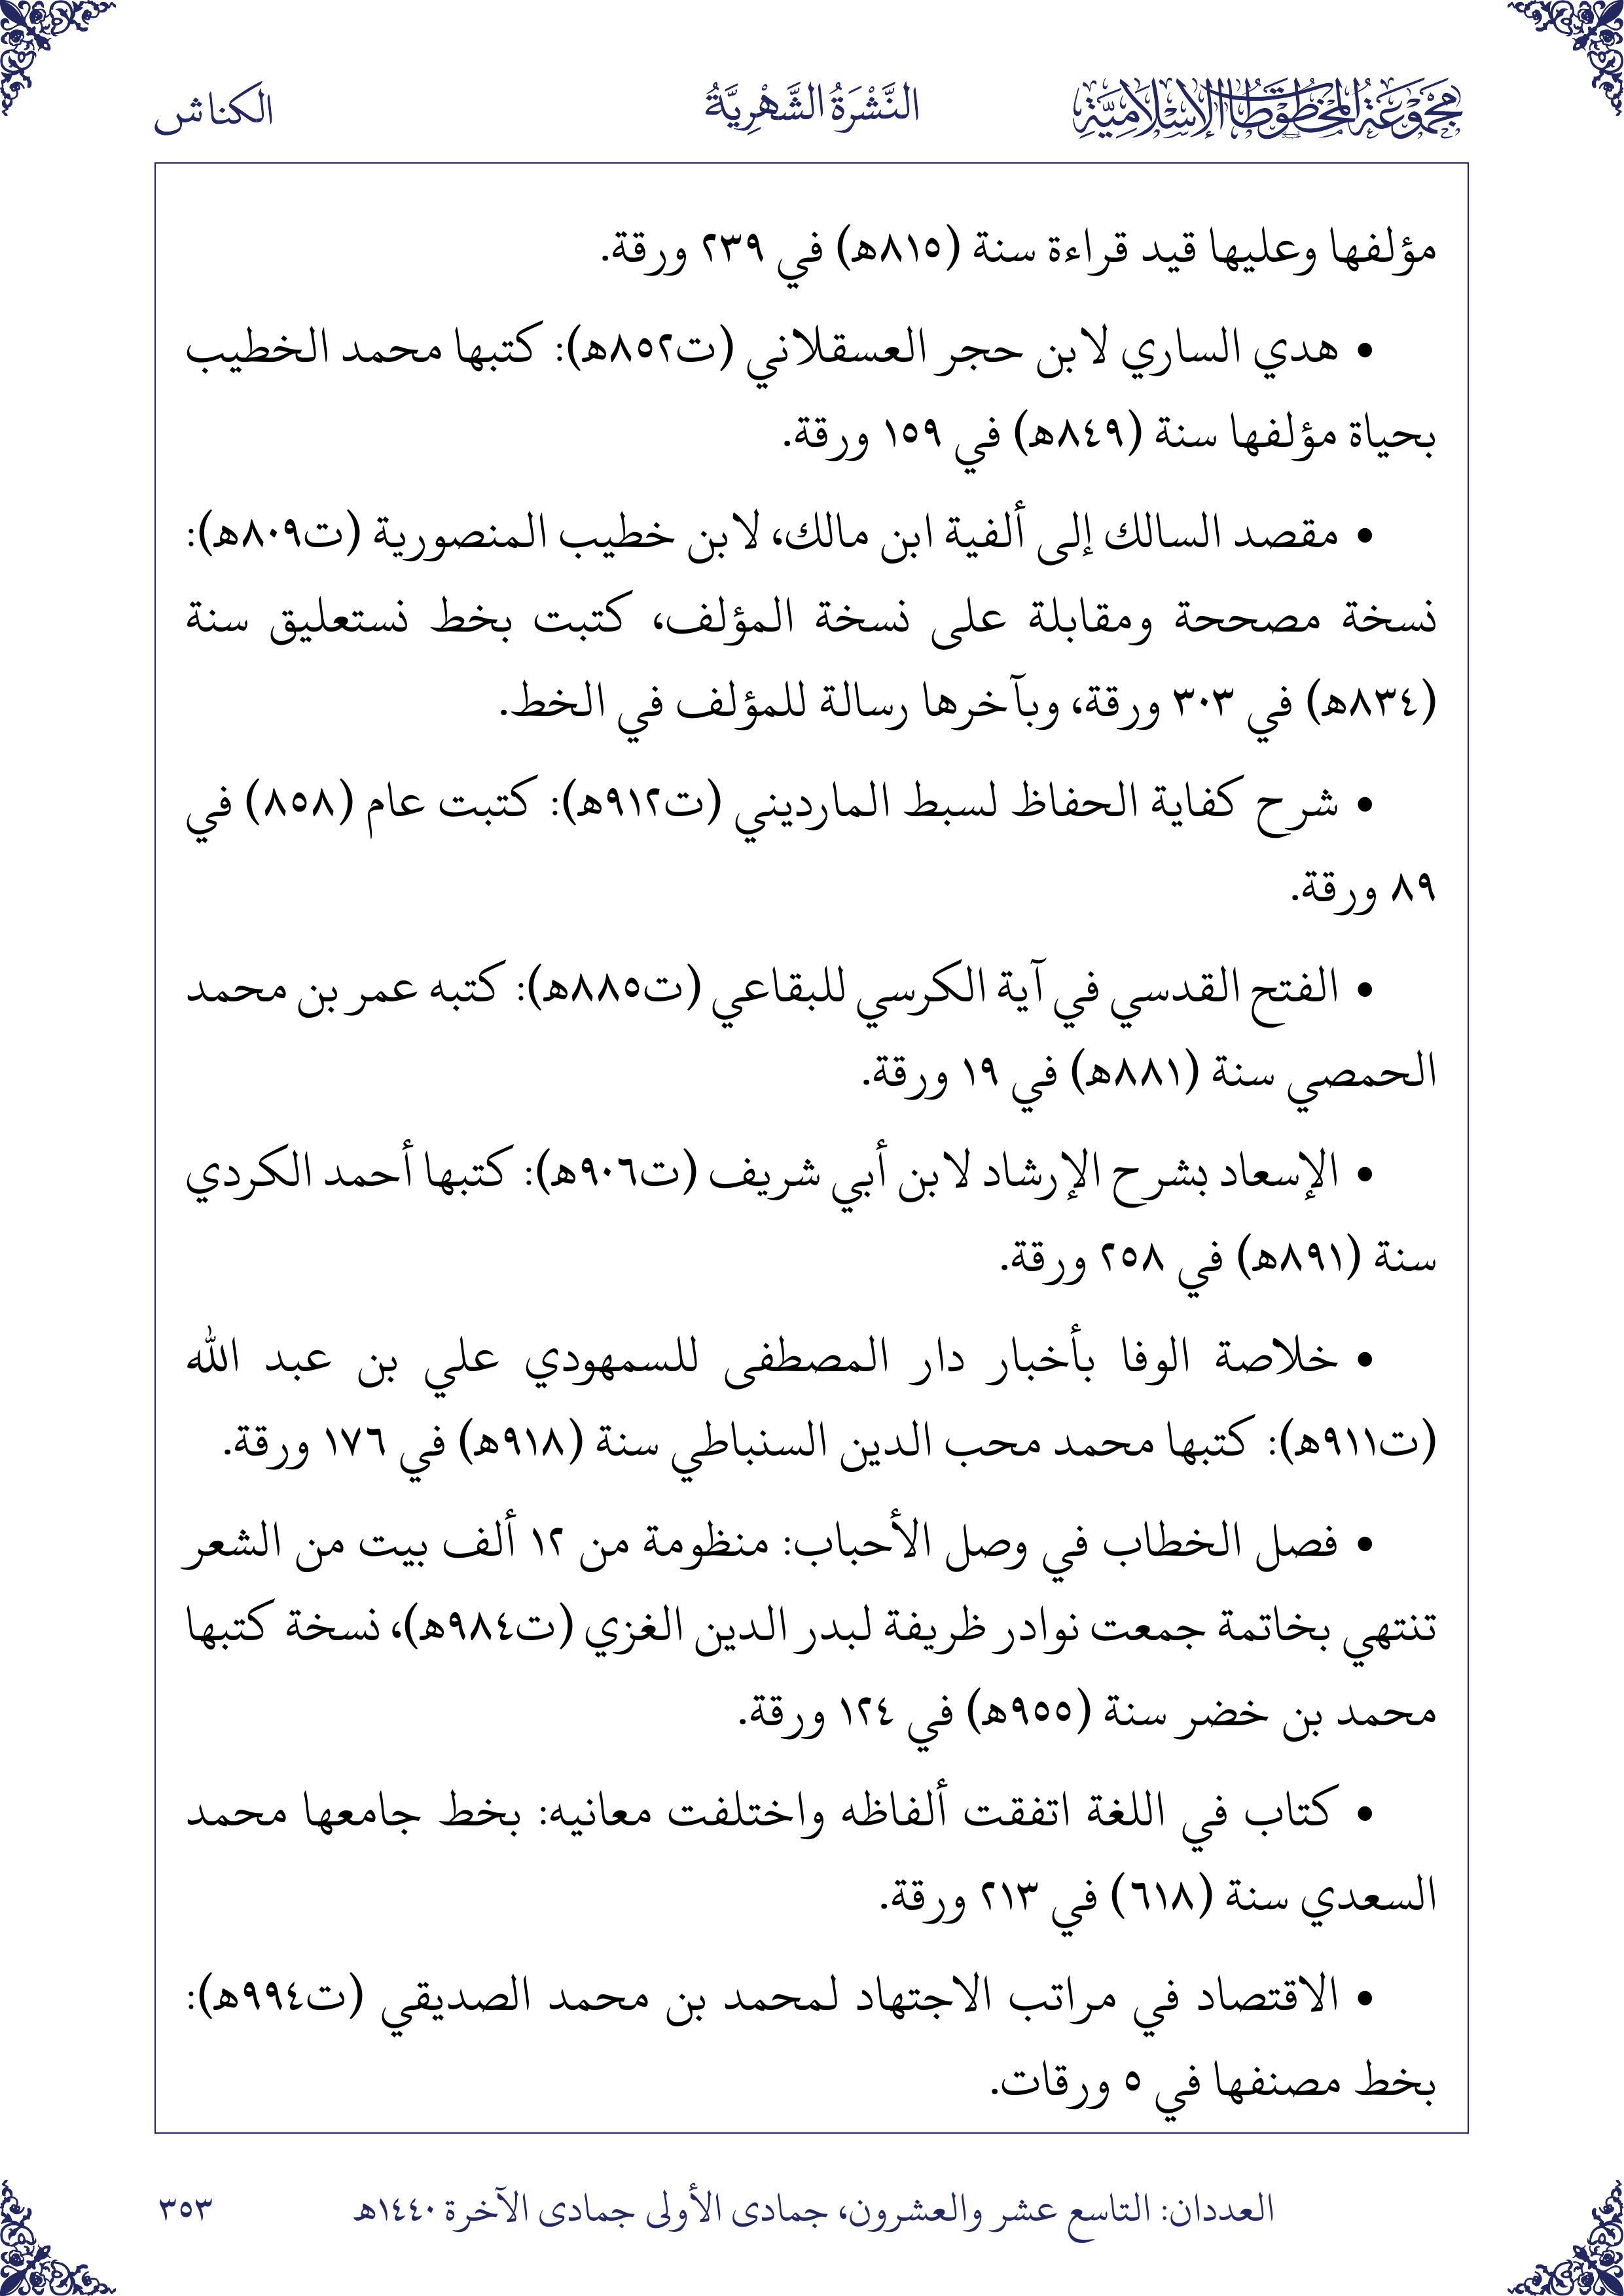 مجموعة المخطوطات الإسلامية
النَّشْرَةُ الشَّهْرِيَّةُ
الكناش
مؤلفها وعليها قيد قراءة سنة (٨١٥هـ) في ٢٣٩ ورقة.
• هدي الساري لابن حجر العسقلاني (ت٨٥٢هـ): كتبها محمد الخطيب
بحياة مؤلفها سنة (٨٤٩هـ) في ١٥٩ ورقة.
• مقصد السالك إلى ألفية ابن مالك، لابن خطيب المنصورية (ت٨٠٩هـ):
نسخة مصححة ومقابلة على نسخة المؤلف، كتبت بخط نستعليق سنة
(٨٣٤هـ) في ٣٠٣ ورقة، وبآخرها رسالة للمؤلف في الخط.
• شرح كفاية الحفاظ لسبط المارديني (ت٩١٢هـ): كتبت عام (٨٥٨) في
٨٩ ورقة.
• الفتح القدسي في آية الكرسي للبقاعي (ت٨٨٥هـ): كتبه عمر بن محمد
الحمصي سنة (٨٨١هـ) في ١٩ ورقة.
• الإسعاد بشرح الإرشاد لابن أبي شريف (ت٩٠٦هـ): كتبها أحمد الكردي
سنة (٨٩١هـ) في ٢٥٨ ورقة.
• خلاصة الوفا بأخبار دار المصطفى للسمهودي علي بن عبد الله
(ت٩١١هـ): كتبها محمد محب الدين السنباطي سنة (٩١٨هـ) في ١٧٦ ورقة.
• فصل الخطاب في وصل الأحباب: منظومة من ١٢ ألف بيت من الشعر
تنتهي بخاتمة جمعت نوادر ظريفة لبدر الدين الغزي (ت٩٨٤هـ)، نسخة كتبها
محمد بن خضر سنة (٩٥٥هـ) في ١٢٤ ورقة.
• كتاب في اللغة اتفقت ألفاظه واختلفت معانيه: بخط جامعها محمد
السعدي سنة (٦١٨) في ٢١٣ ورقة.
• الاقتصاد في مراتب الاجتهاد لمحمد بن محمد الصديقي (ت٩٩٤هـ):
بخط مصنفها في ٥ ورقات.
العددان: التاسع عشر والعشرون، جمادى الأولى جمادى الآخرة ١٤٤٠هـ
٣٥٣